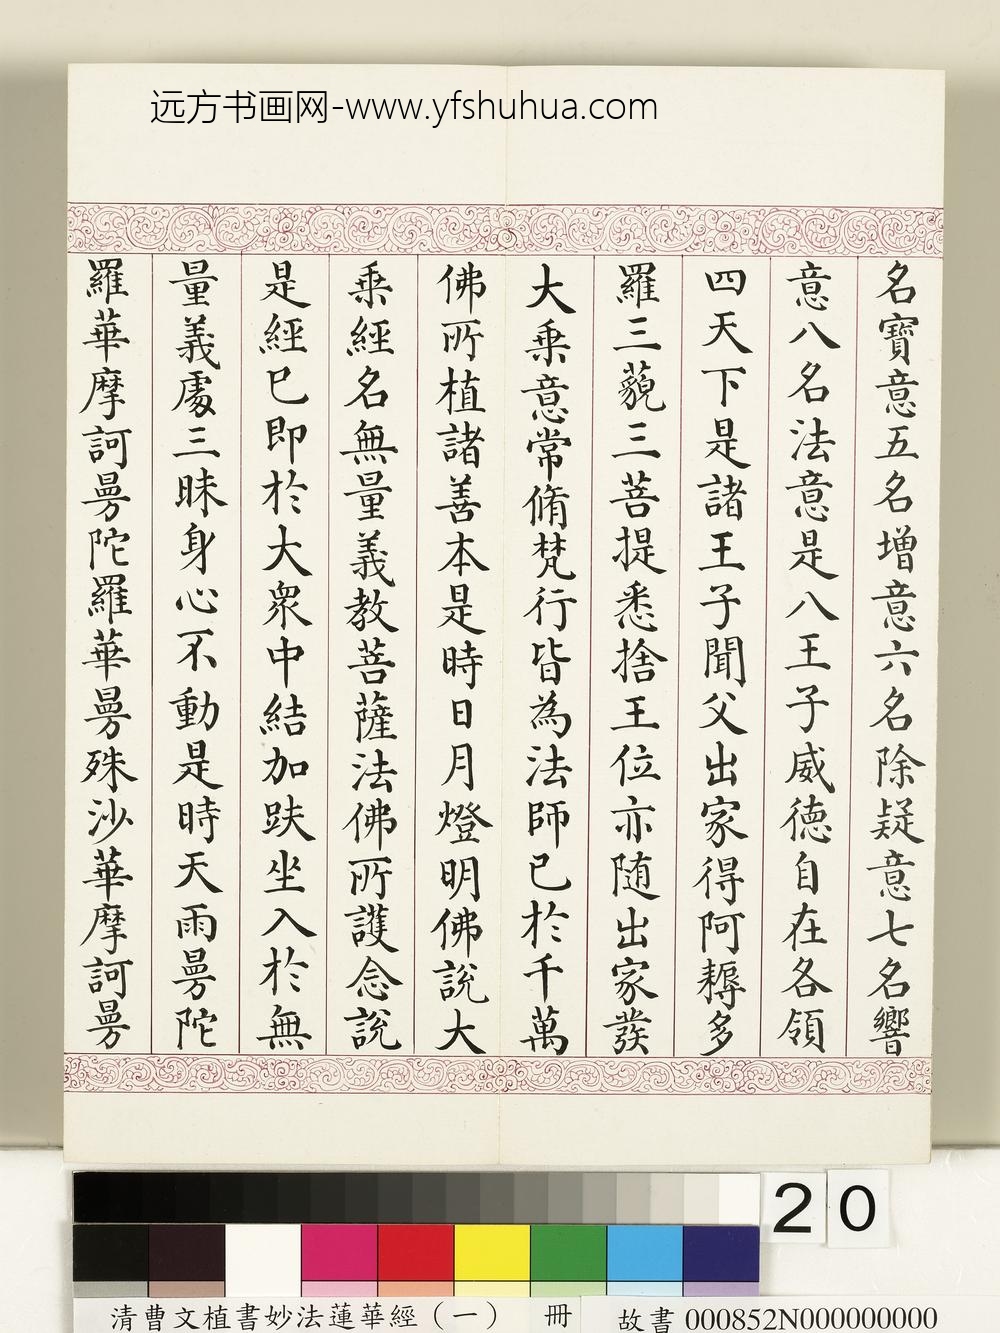 远方书画网-www.yfshuhua.com
名寶意五名增意六名除疑意七名響
意八名法意是八王子威德自在各領
四天下是諸王子聞父出家得阿耨多
羅三藐三菩提悉捨王位亦随出家發
大乘意常脩梵行皆為法師已於千萬
佛所植諸善本是時日月燈明佛說大
乘經名無量義教菩薩法佛所護念說
是經已即於大衆中結加趺坐入於無
量義處三昧身心不動是時天雨曼陀
羅華摩訶曼陀羅華曼殊沙華摩訶曼
20
清曹文植書妙法蓮華經（一） 冊 故書 000852N000000000